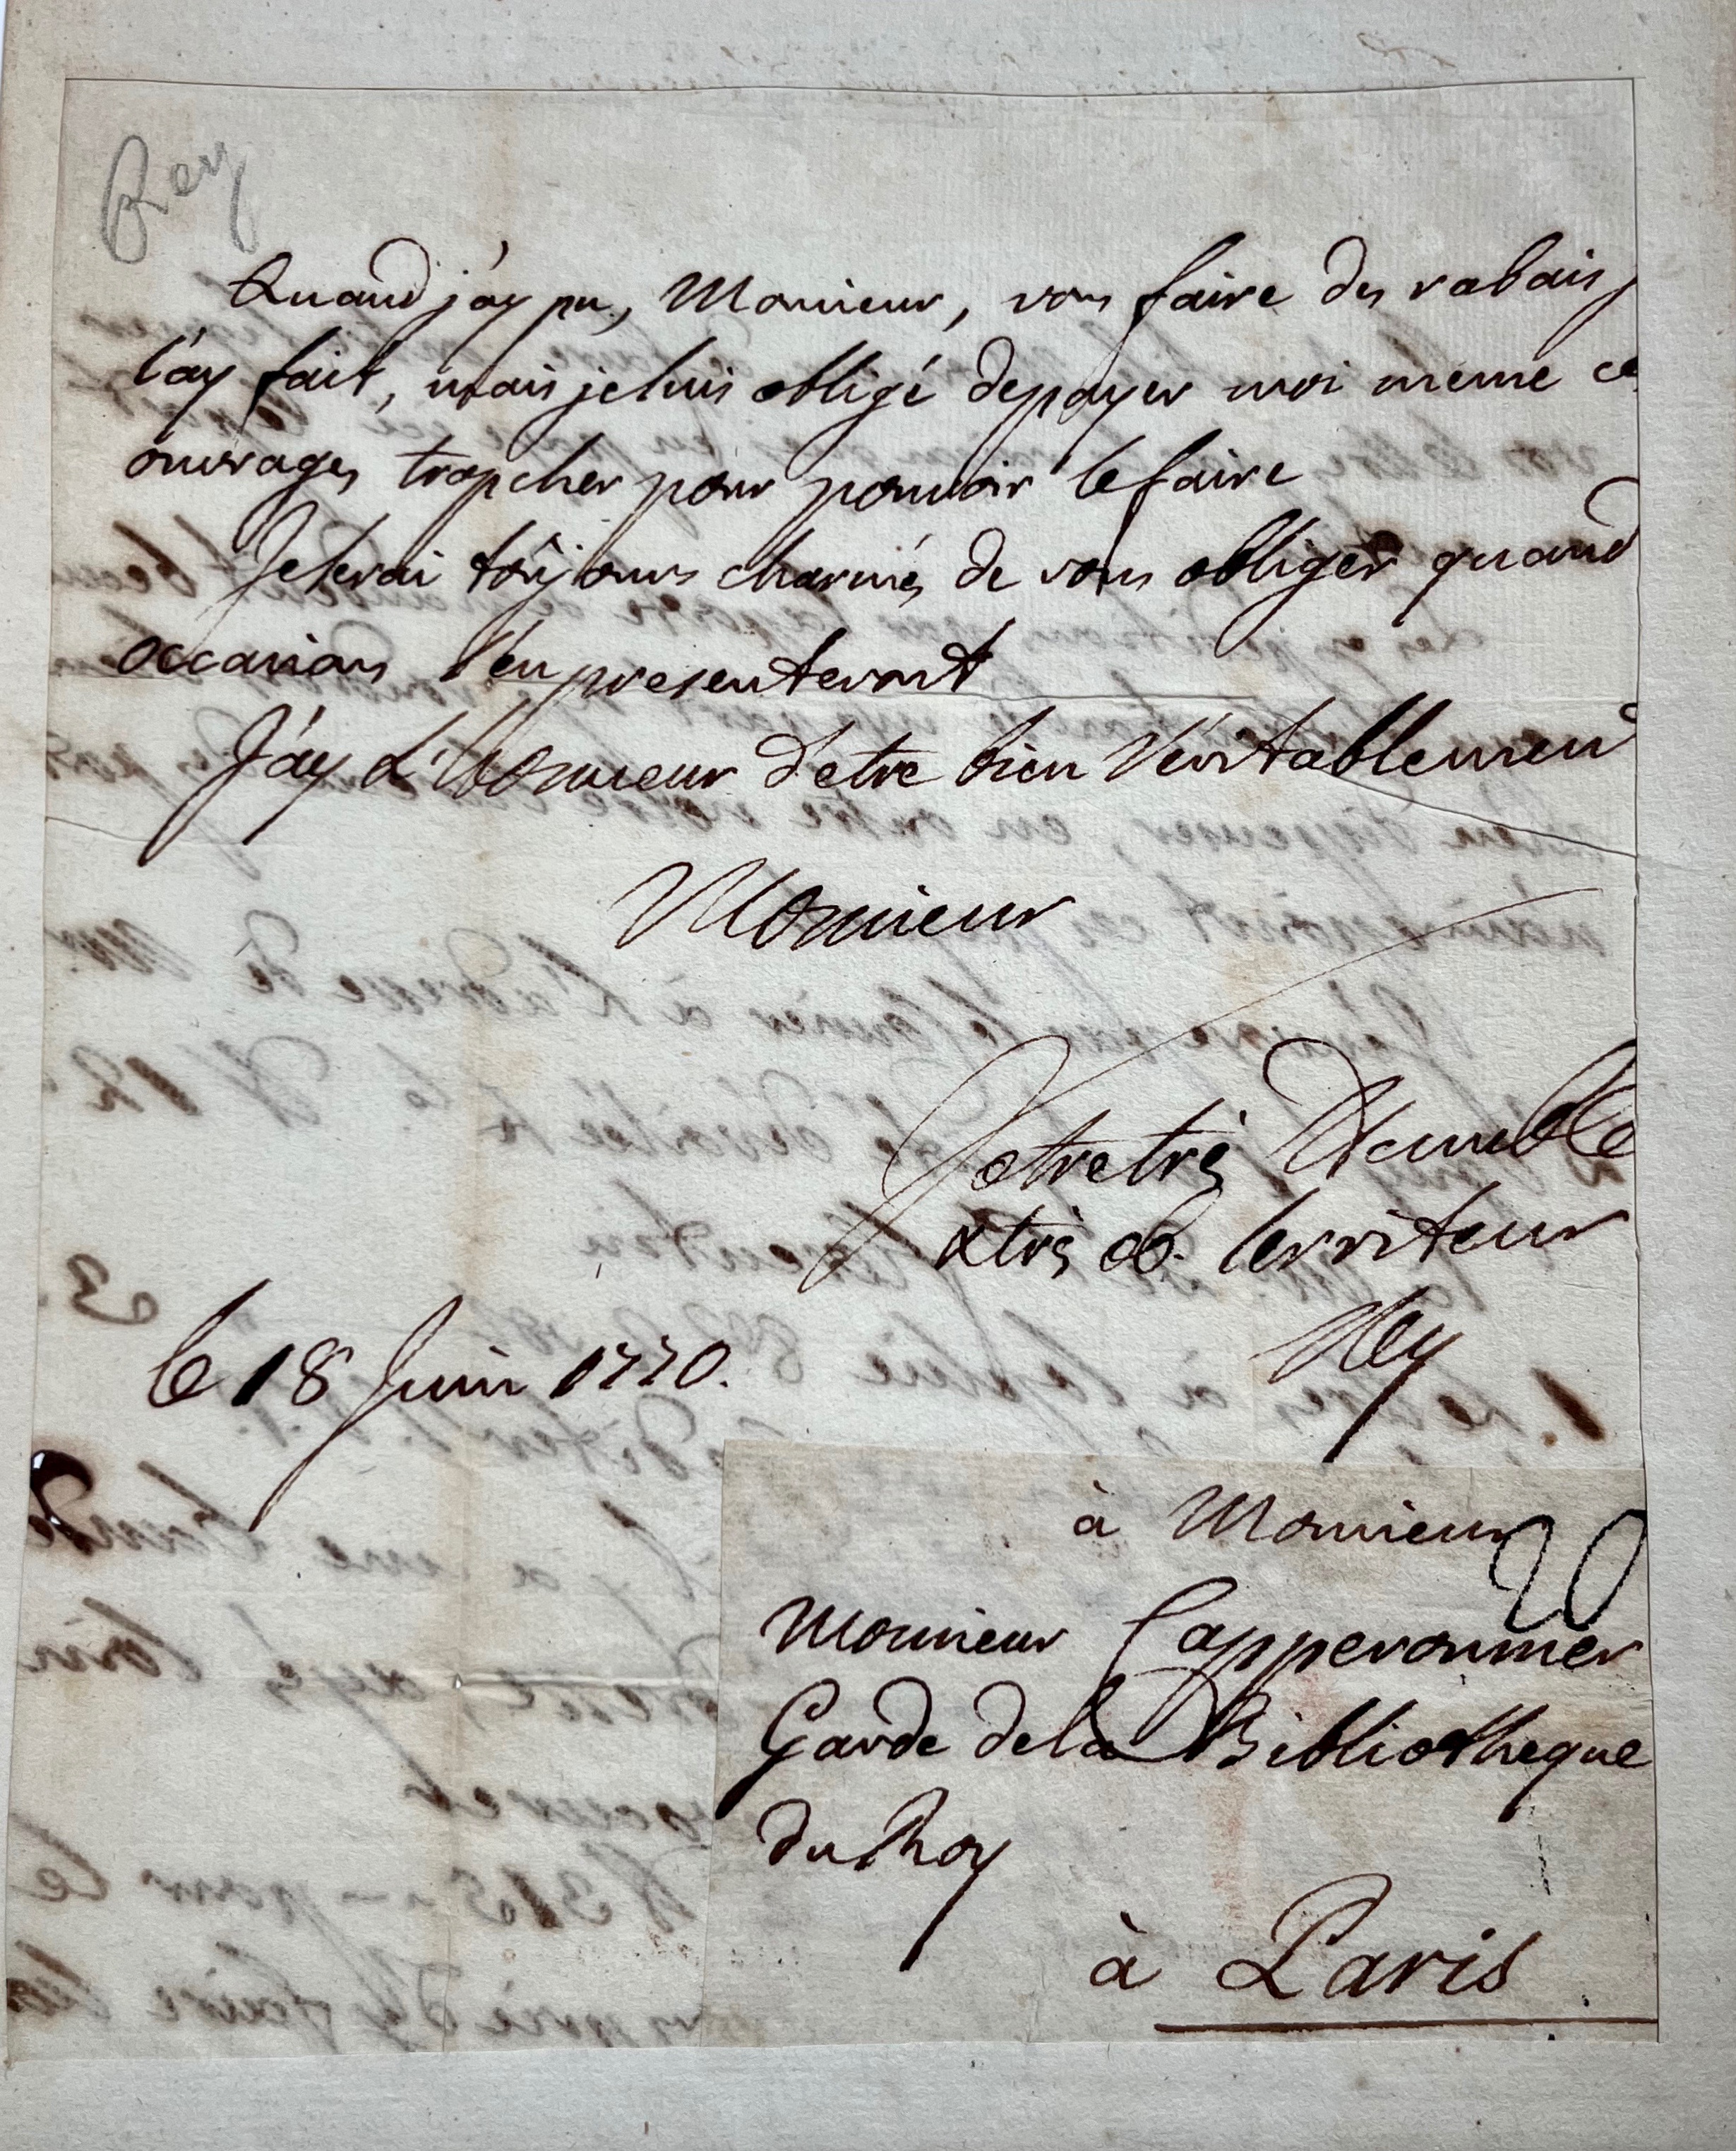 Rey
Quand j'ay pu, Monsieur, vous faire des rabais j
l'ay fait, mais je suis obligé de payer moi meme ce
ouvrages trop cher pour pouvoir le faire
Je serai toûjours charmés de vous obliger quand
occasions s'en presenteront
J'ay L'Honneur d'etre bien Véritablement
Monsieur
Votre très Humble
& très ob. serviteur
Rey
le 18 Juin 1770.
à Monsieur
20
Monsieur Capperonnier
Garde de la Bibliotheque
du Roy
à Paris